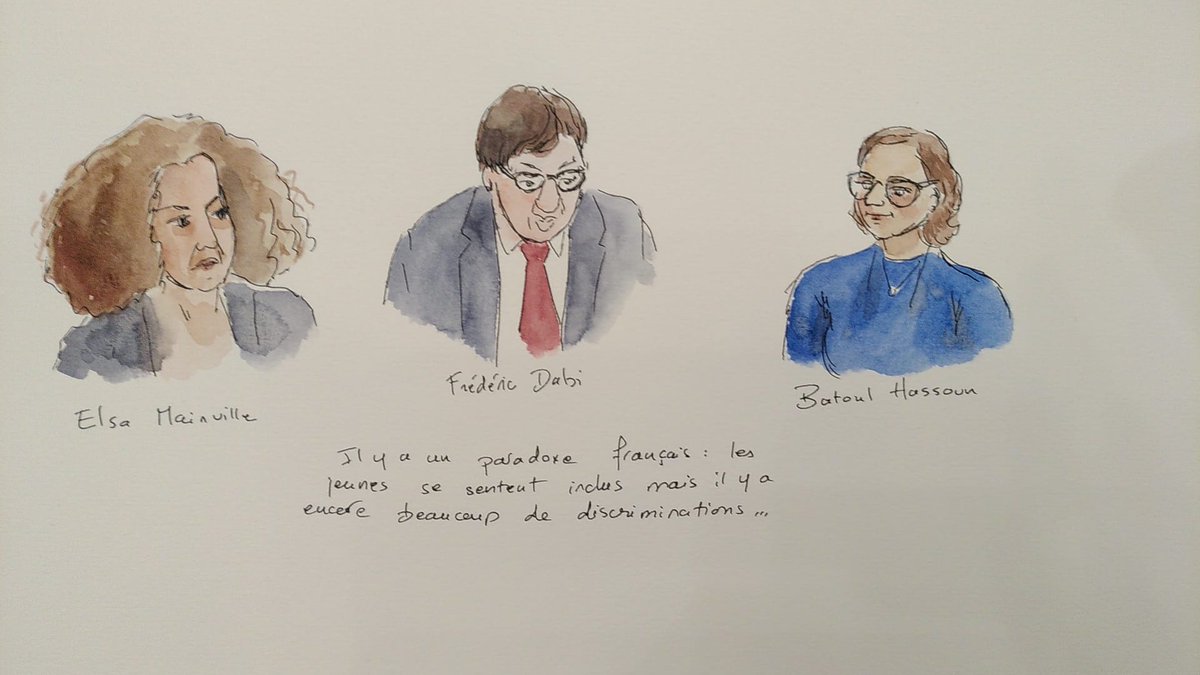 Elsa Mainville
Frédéric Dabi
Batoul Hassoun
Il y a un paradoxe français : les
jeunes se sentent inclus mais il y a
encore beaucoup de discriminations...